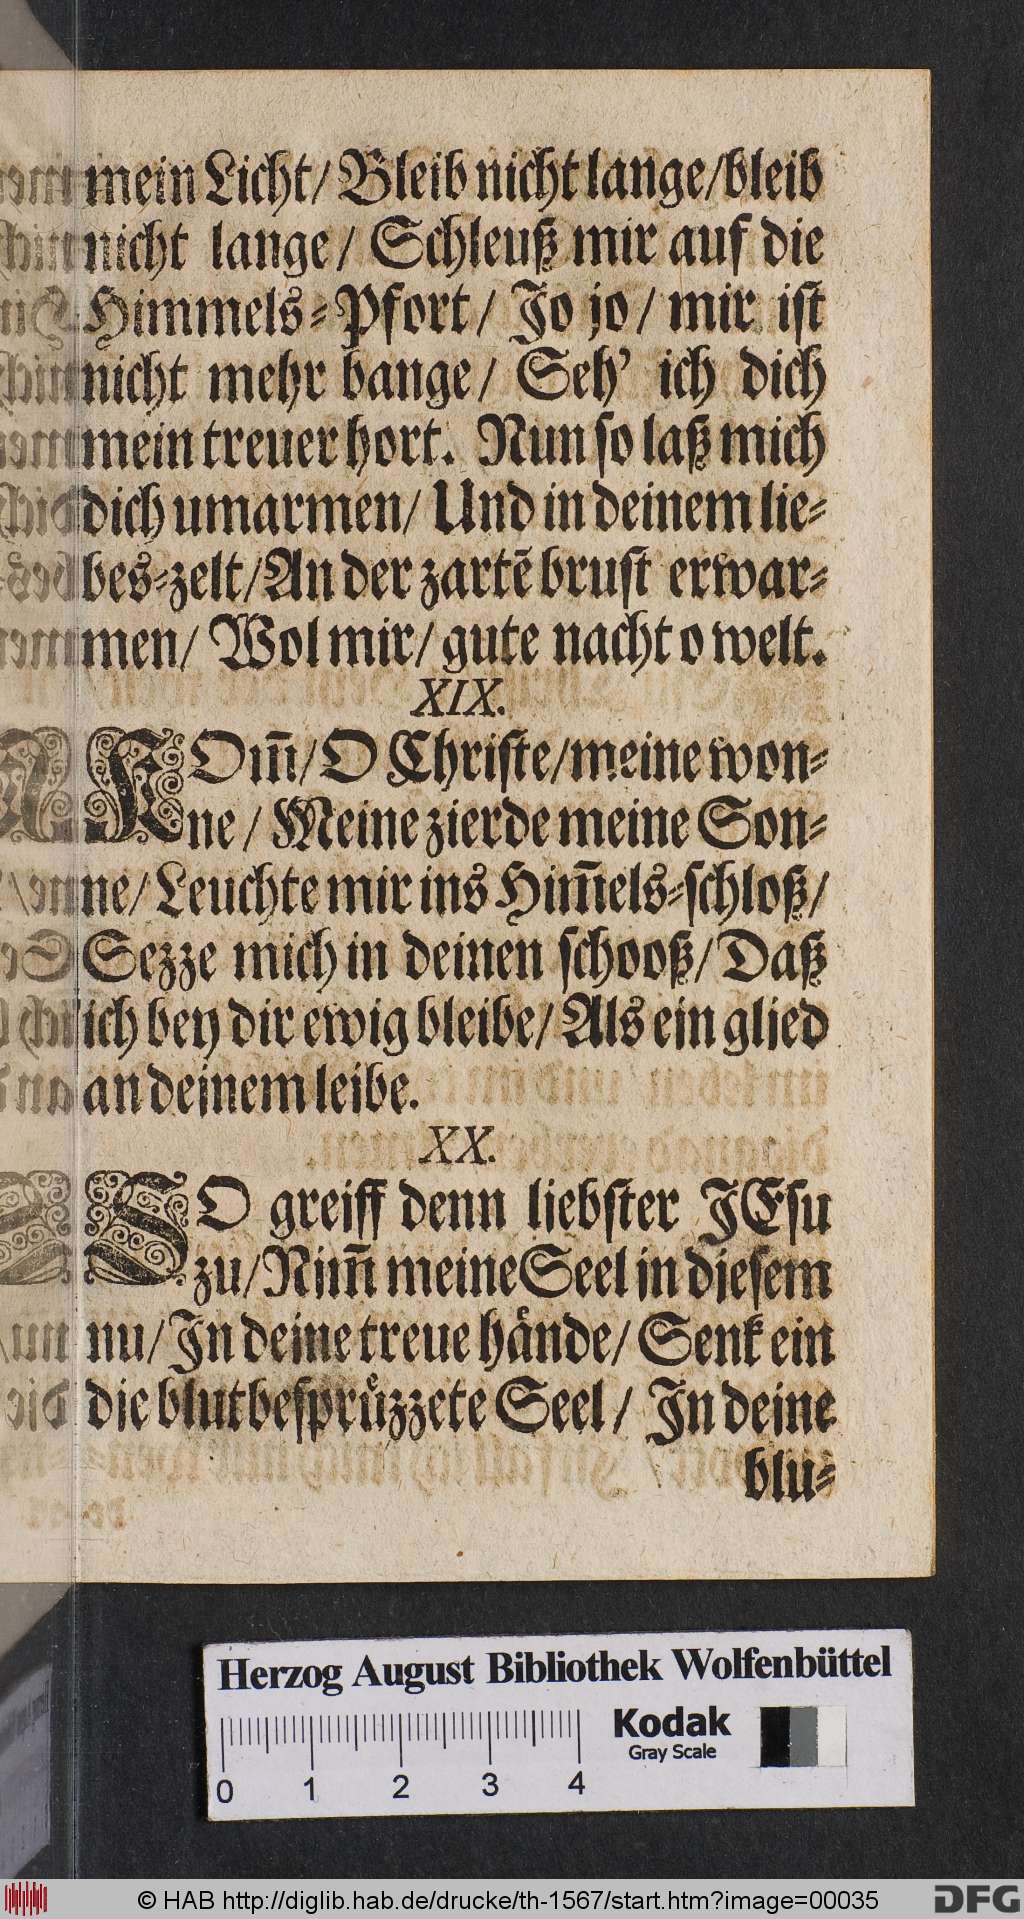 mein Licht/ Bleib nicht lange/bleib
nicht lange/ Schleuß mir auf die
Himmels-Pfort/ Jo jo/ mir ist
nicht mehr bange/ Seh' ich dich
mein treuer hort. Nun so laß mich
dich umarmen/ Und in deinem lie-
bes-zelt/An der zartē brust erwar-
men/ Wol mir/ gute nacht o welt.
XIX.
KOm̄/ O Christe/meine won-
ne/ Meine zierde meine Son-
ne/ Leuchte mir ins Him̄els-schloß/
Sezze mich in deinen schooß/ Daß
ich bey dir ewig bleibe/ Als ein glied
an deinem leibe.
XX.
SO greiff denn liebster JEsu
zu/ Nim̄ meine Seel in diesem
nu/ In deine treue hände/ Senk ein
die blutbesprützzete Seel/ In deine
blu-
Herzog August Bibliothek Wolfenbüttel
Kodak
Gray Scale
0 1 2 3 4
© HAB http://diglib.hab.de/drucke/th-1567/start.htm?image=00035
DFG